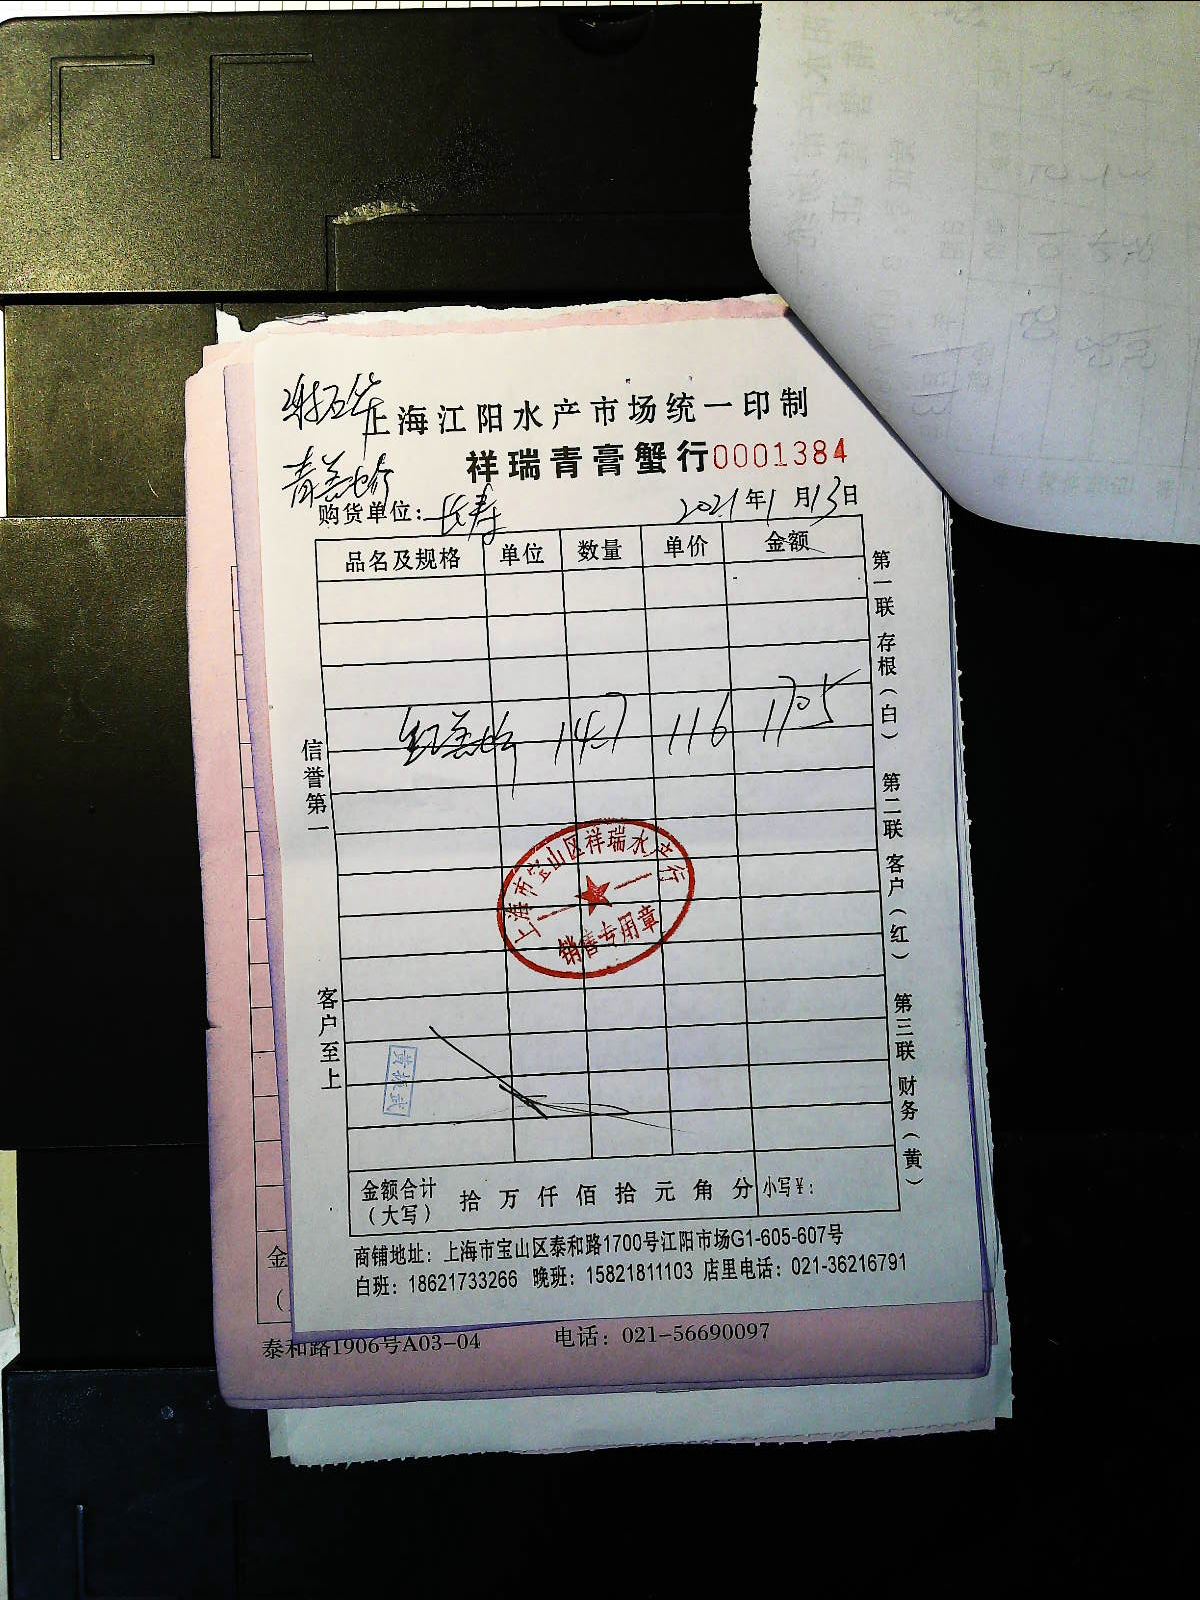 上海江阳水产市场统一印制
祥瑞青膏蟹行0001384
购货单位：长寿 2021年1月13日
品名及规格 单位 数量 单价 金额
红膏蛤 14.7 116 1705
上海市宝山区祥瑞水产行
销售专用章
信誉第一
客户至上
第一联 存根（白） 第二联 客户（红） 第三联 财务（黄）
金额合计（大写） 拾 万 仟 佰 拾 元 角 分 小写¥：
商铺地址：上海市宝山区泰和路1700号江阳市场G1-605-607号
白班：18621733266 晚班：15821811103 店里电话：021-36216791
金
（
泰和路1906号A03-04 电话：021-56690097